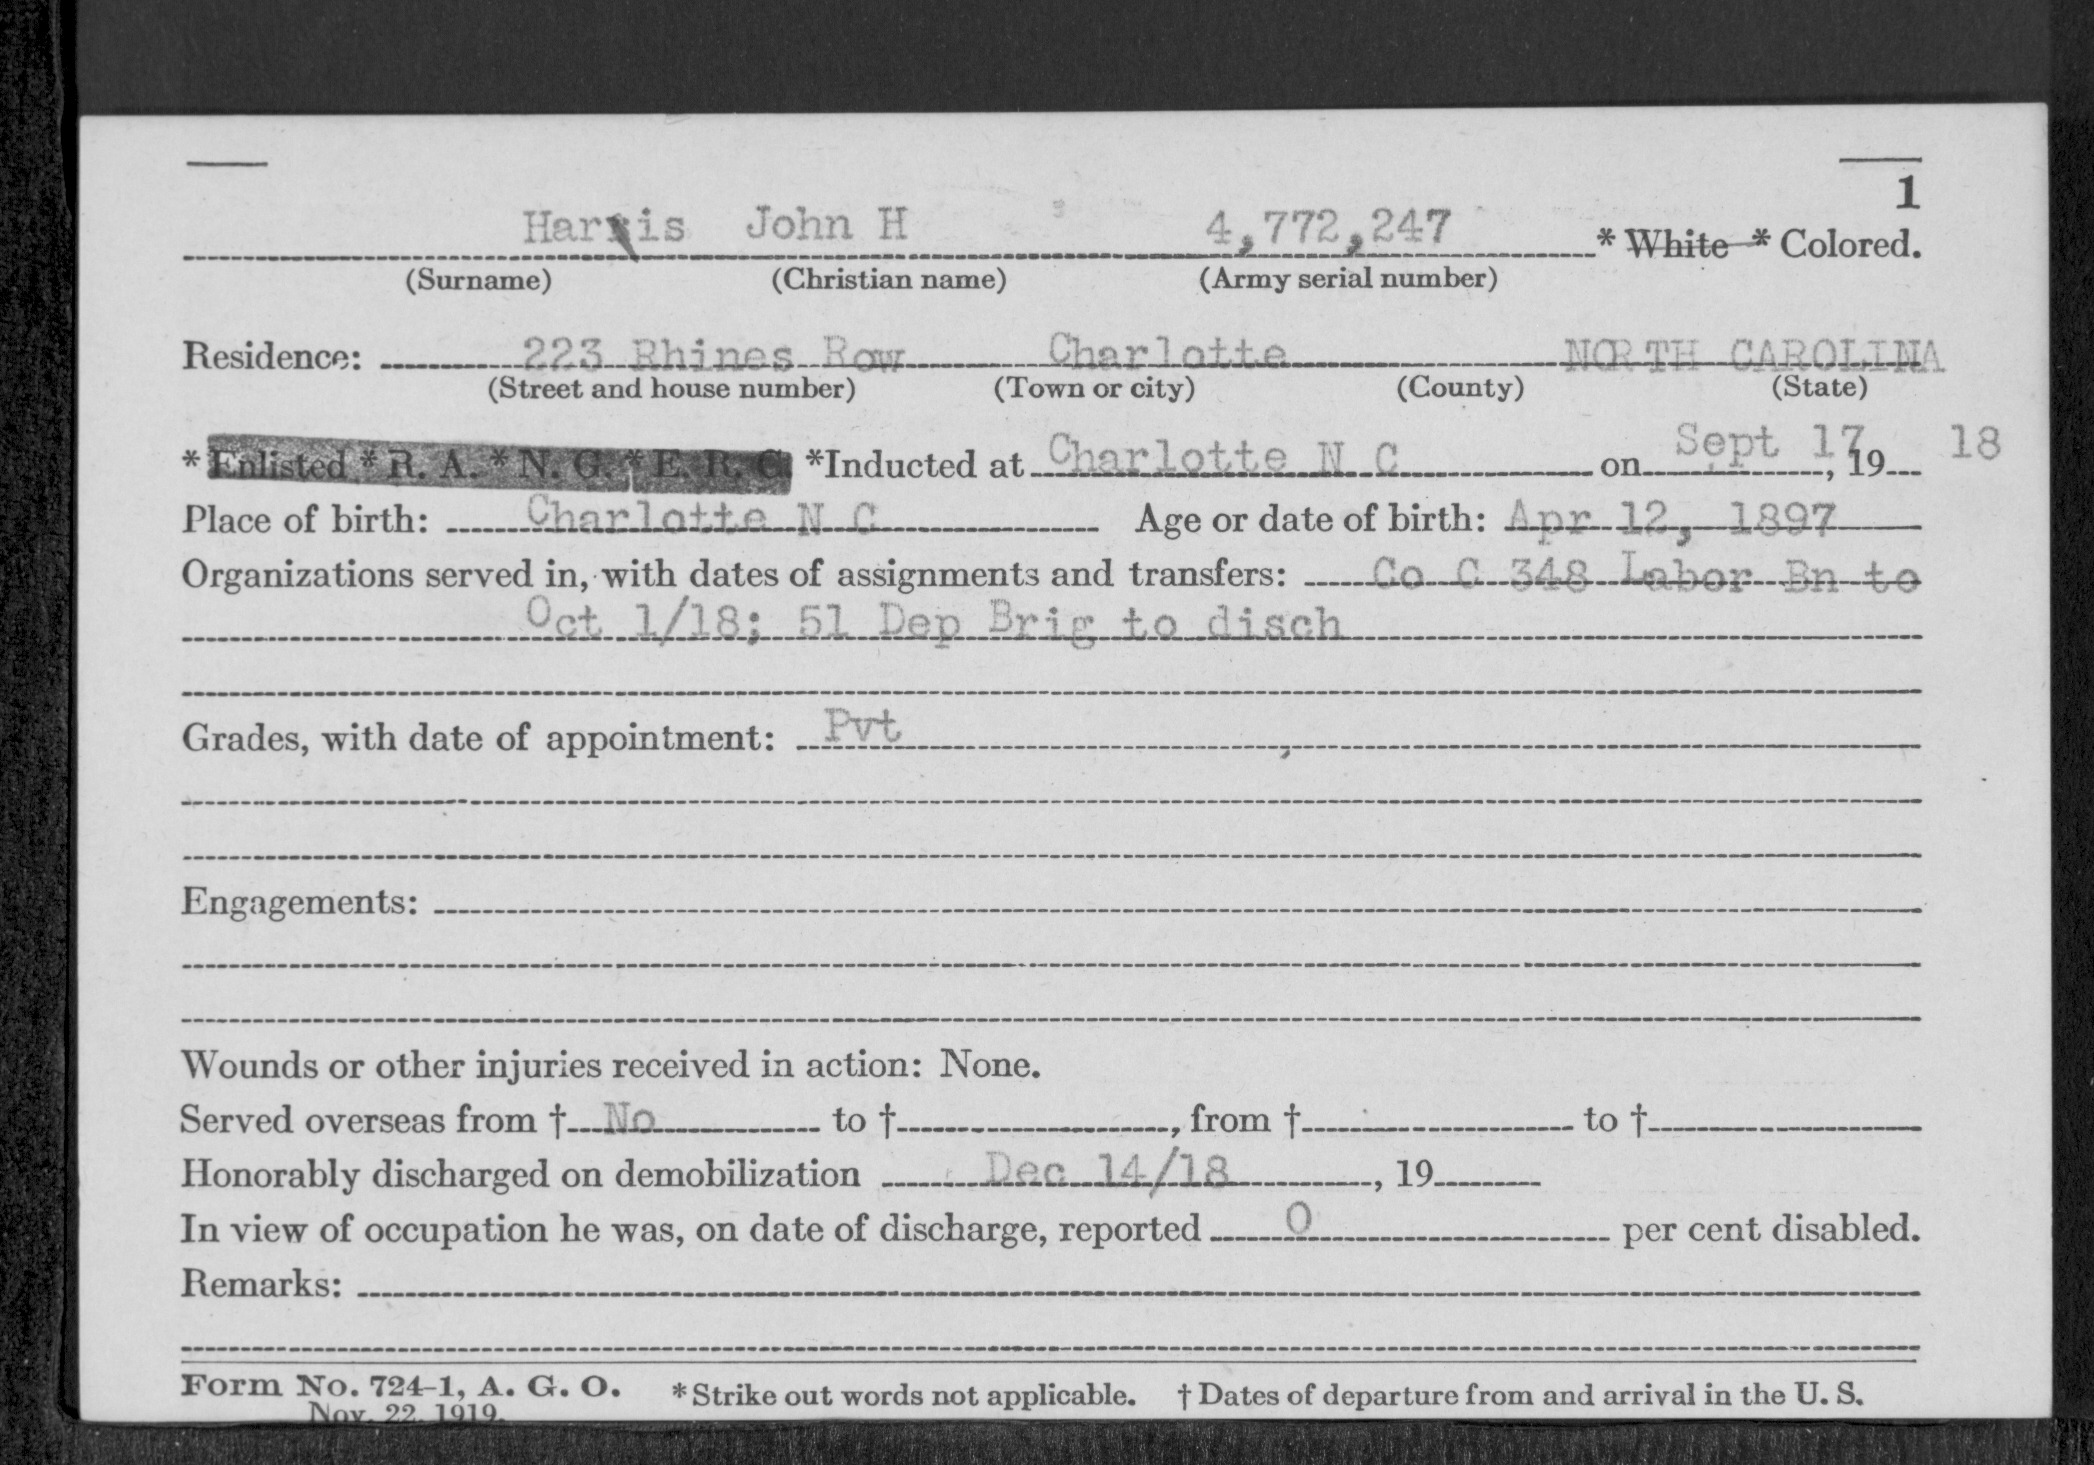 1
Harris John H 4,772,247 * White * Colored.
(Surname) (Christian name) (Army serial number)
Residence: 223 Rhines Row Charlotte NORTH CAROLINA
(Street and house number) (Town or city) (County) (State)
* Enlisted * R. A. * N. G. * E. R. C. *Inducted at Charlotte N C on Sept 17, 19 18
Place of birth: Charlotte N C Age or date of birth: Apr 12, 1897
Organizations served in, with dates of assignments and transfers: Co C 348 Labor Bn to
Oct 1/18; 51 Dep Brig to disch
Grades, with date of appointment: Pvt
Engagements:
Wounds or other injuries received in action: None.
Served overseas from † No to †, from † to †
Honorably discharged on demobilization Dec 14/18, 19
In view of occupation he was, on date of discharge, reported 0 per cent disabled.
Remarks:
Form No. 724-1, A. G. O. * Strike out words not applicable. † Dates of departure from and arrival in the U. S.
Nov. 22, 1919.